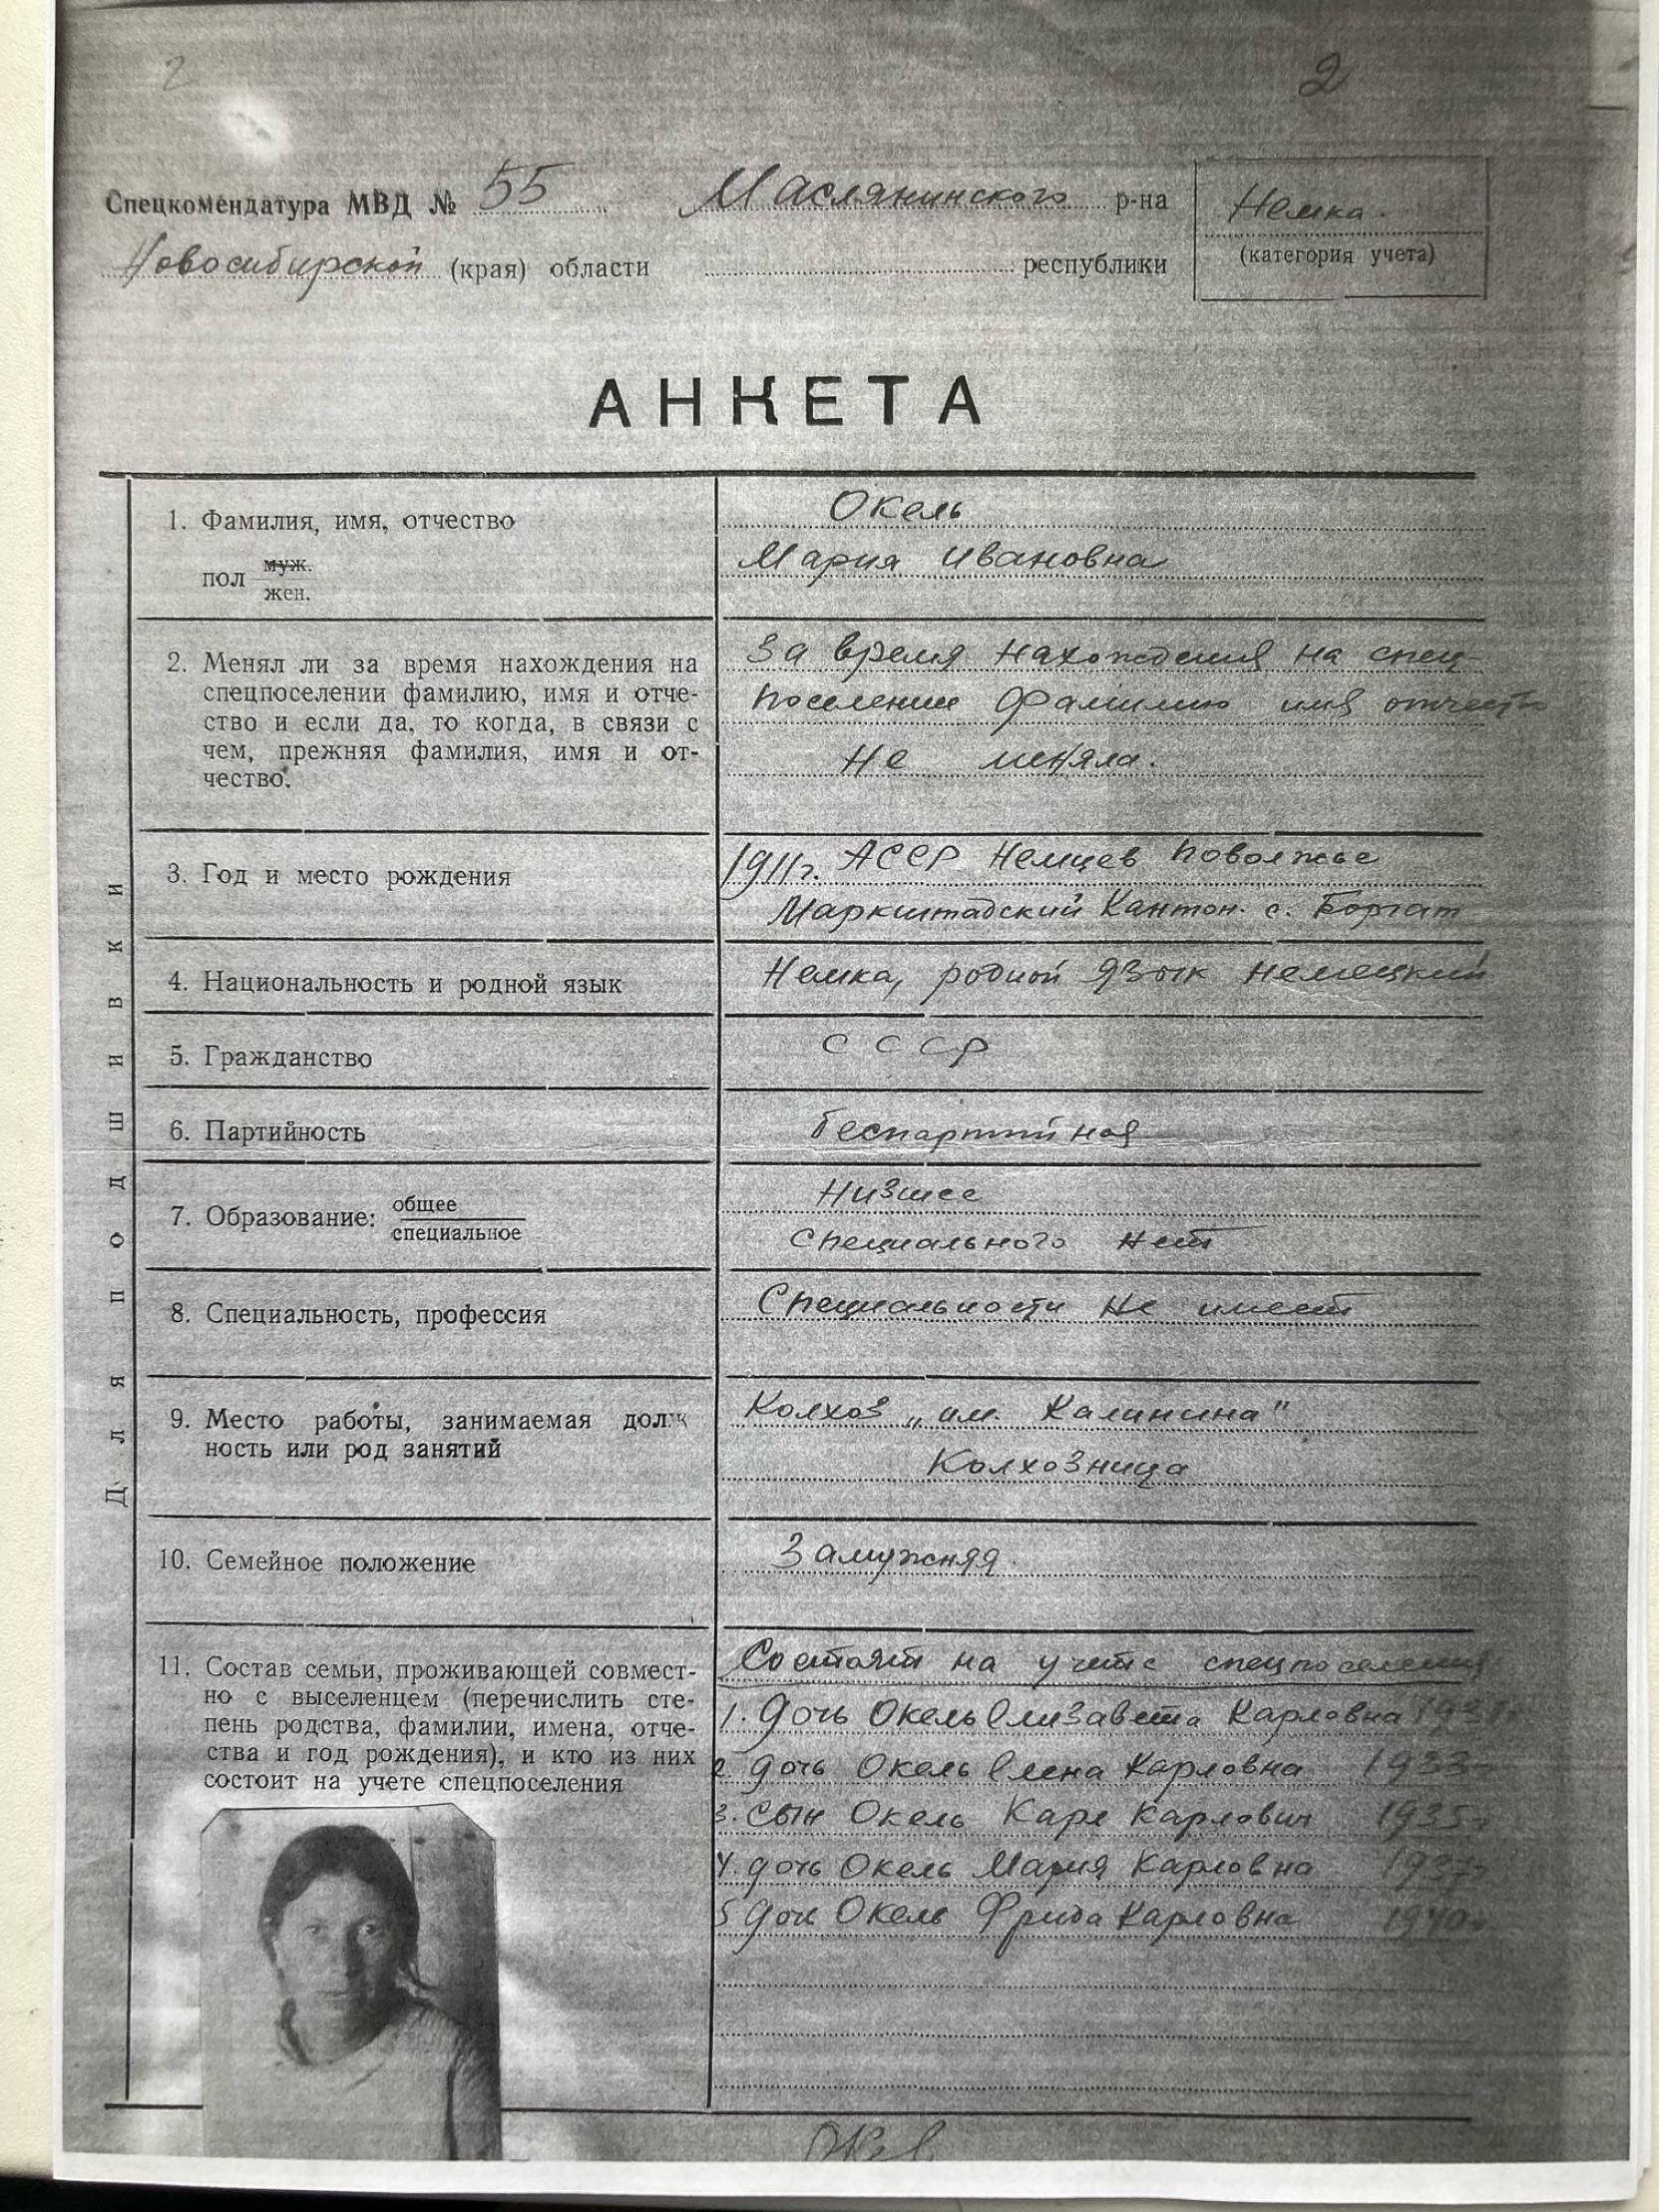 2 2
Спецкомендатура МВД № 55 Маслянинского р-на
Новосибирской (края) области республики
Немка.
(категория учета)
АНКЕТА
Для подшивки
1. Фамилия, имя, отчество
пол муж.
жен.
Окель
Мария Ивановна
2. Менял ли за время нахождения на
спецпоселении фамилию, имя и отче-
ство и если да, то когда, в связи с
чем, прежняя фамилия, имя и от-
чество.
За время нахождения на спец-
поселении фамилию имя
не меняла.
3. Год и место рождения
1911 г. АССР Немцев Поволжье
Маркштадский Кантон. с. Боргат
4. Национальность и родной язык
Немка, родной язык немецкий
5. Гражданство
СССР
6. Партийность
беспартийная
7. Образование: общее
специальное
Низшее
Специального нет
8. Специальность, профессия
Специальности не имеет
9. Место работы, занимаемая долж
ность или род занятий
Колхоз „им. Калинина"
Колхозница
10. Семейное положение
Замужняя.
11. Состав семьи, проживающей совмест-
но с выселенцем (перечислить сте-
пень родства, фамилии, имена, отче-
ства и год рождения), и кто из них
состоит на учете спецпоселения
Состоят на учете спецпоселения
1. дочь Окель Елизавета Карловна
2. дочь Окель Елена Карловна 1933
3. сын Окель Карл Карлович 1935
4. дочь Окель Мария Карловна 1937
5 дочь Окель Фрида Карловна 1940